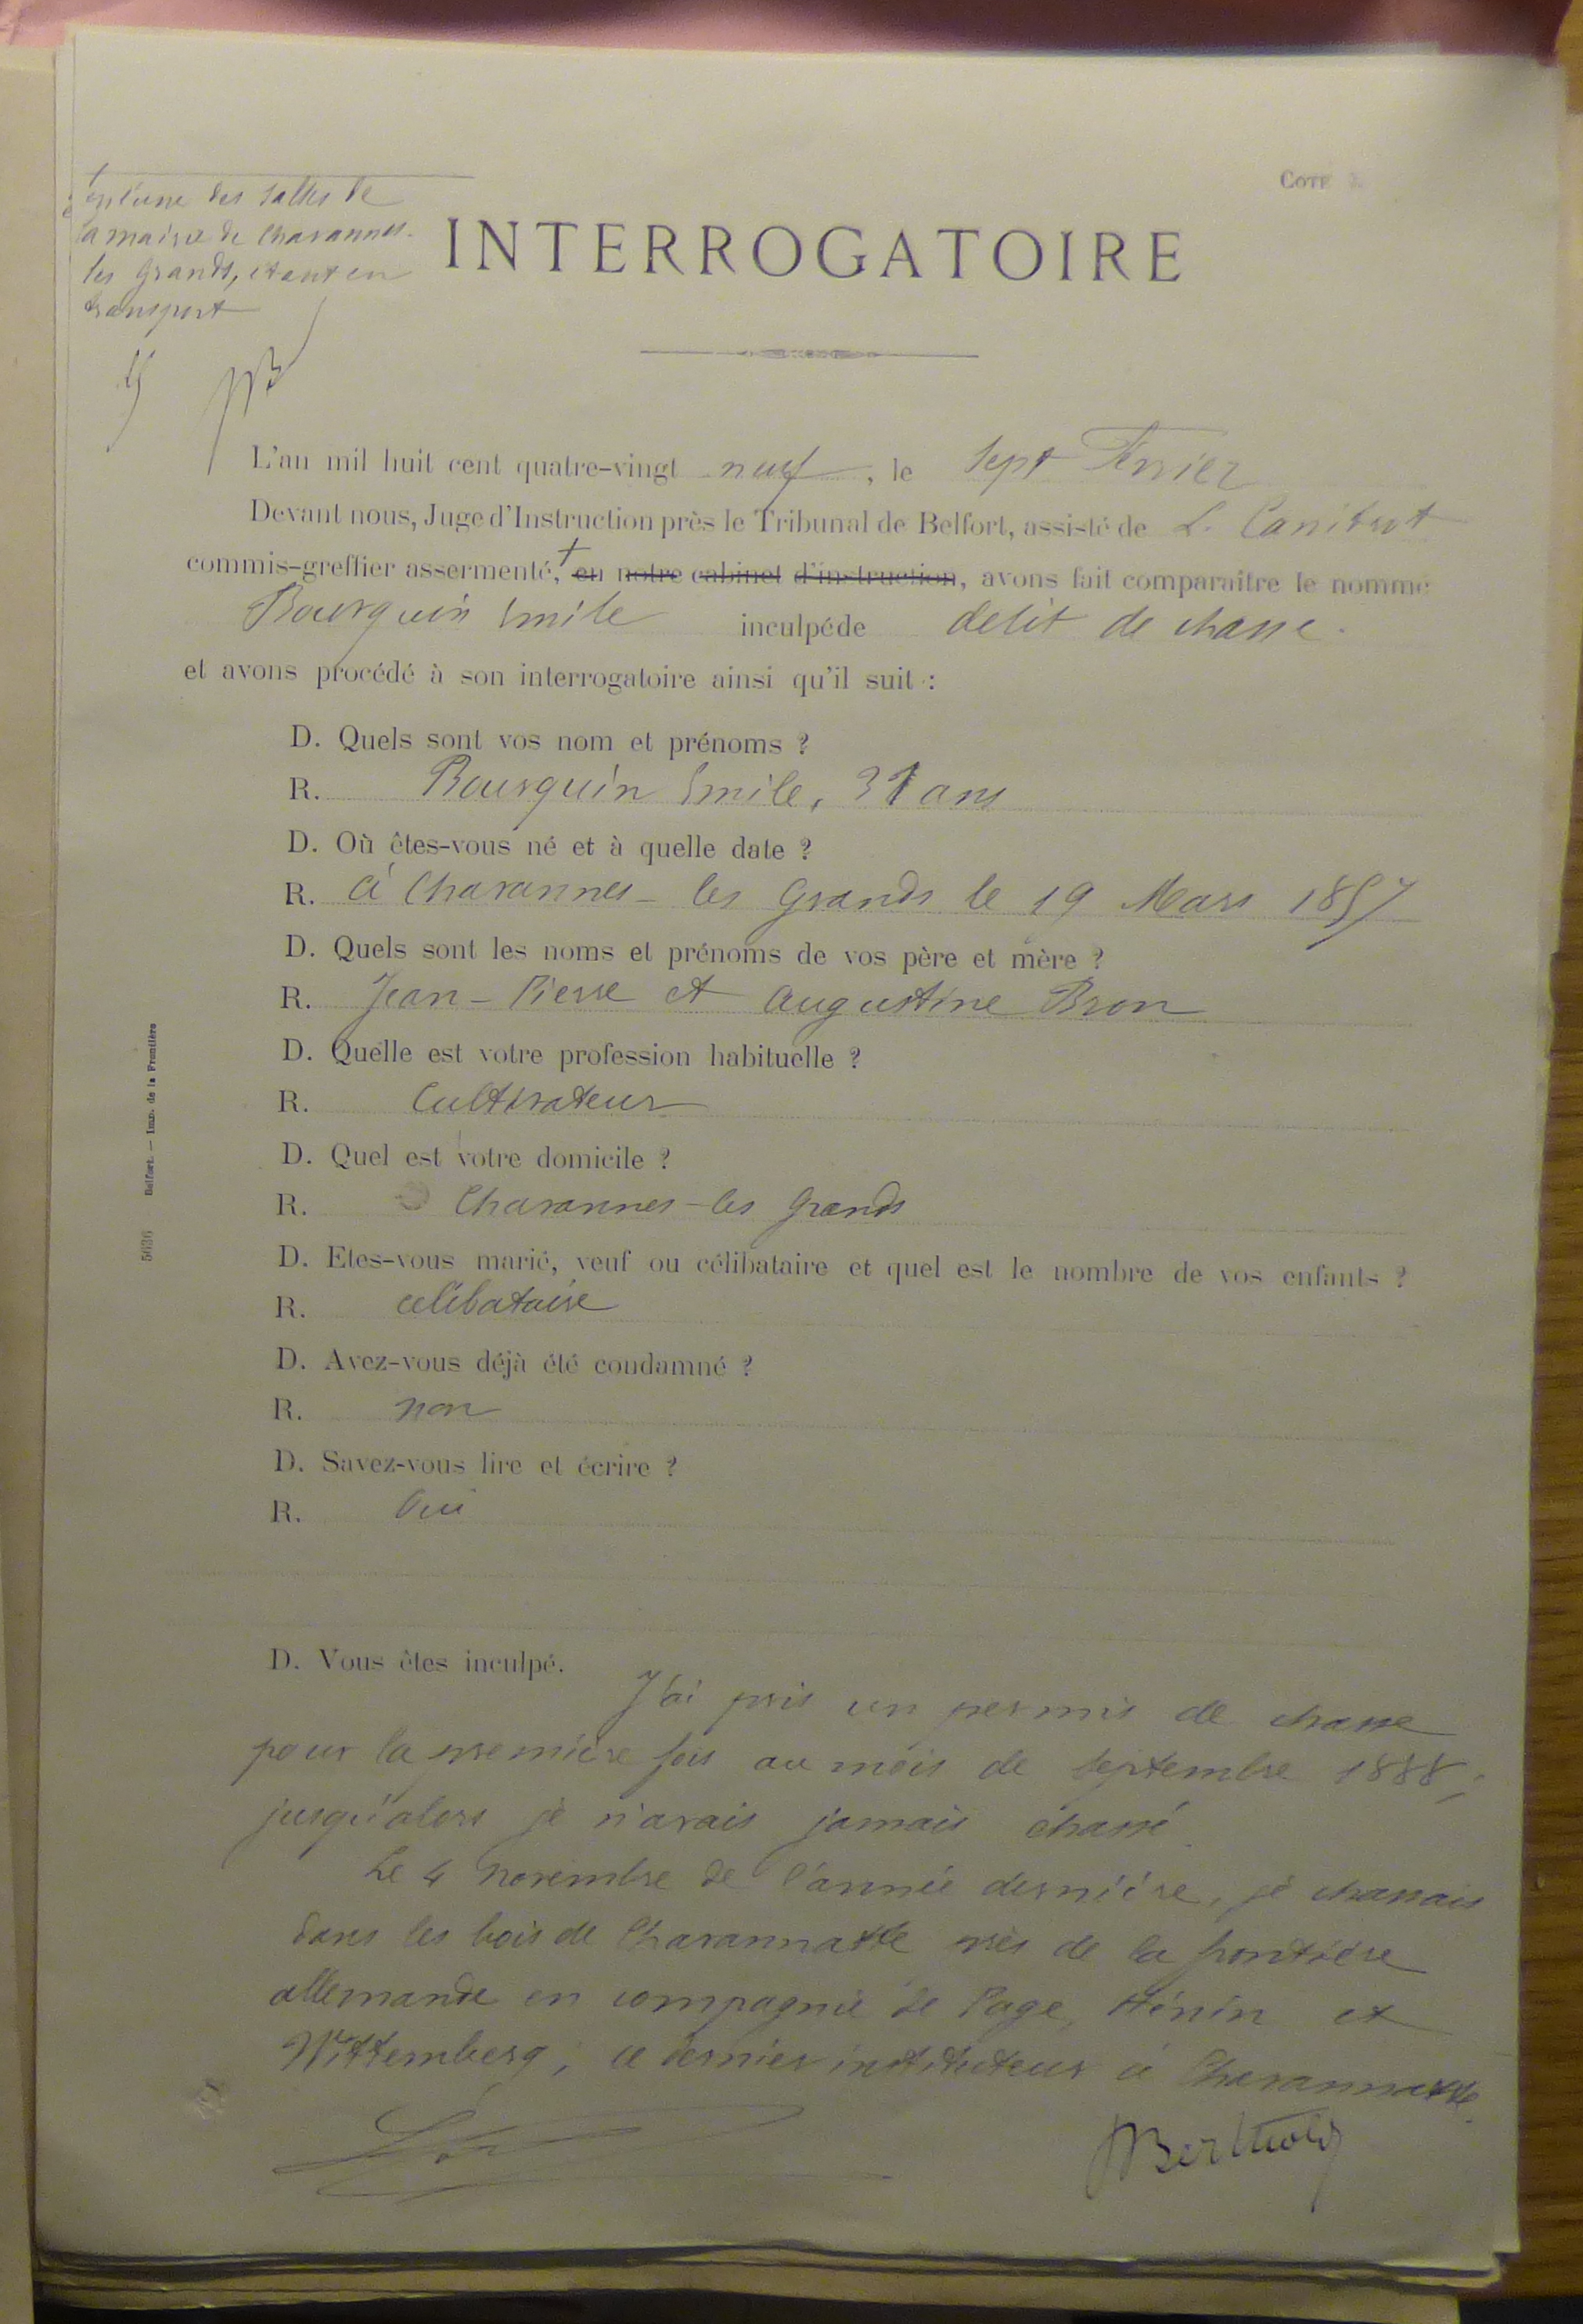 COTE
+ en l'une des salles de
la mairie de Chavannes-
les Grands, étant en
transport
INTERROGATOIRE
L'an mil huit cent quatre-vingt neuf, le sept Février
Devant nous, Juge d'Instruction près le Tribunal de Belfort, assisté de L. Canitrot
commis-greffier assermenté, + en notre cabinet d'instruction, avons fait comparaître le nommé
Bourquin Emile inculpé de délit de chasse.
et avons procédé à son interrogatoire ainsi qu'il suit :
D. Quels sont vos nom et prénoms ?
R. Bourquin Emile, 31 ans
D. Où êtes-vous né et à quelle date ?
R. à Chavannes-les Grands le 19 Mars 1857
D. Quels sont les noms et prénoms de vos père et mère ?
R. Jean-Pierre et Augustine Bron
D. Quelle est votre profession habituelle ?
R. Cultivateur
D. Quel est votre domicile ?
R. Chavannes-les Grands
D. Etes-vous marié, veuf ou célibataire et quel est le nombre de vos enfants ?
R. célibataire
D. Avez-vous déjà été condamné ?
R. non
D. Savez-vous lire et écrire ?
R. Oui
D. Vous êtes inculpé.
J'ai pris un permis de chasse
pour la première fois au mois de septembre 1888;
jusqu'alors je n'avais jamais chassé.
Le 4 novembre de l'année dernière, je chassais
dans les bois de Chavannatte près de la frontière
allemande en compagnie de Page, Hénin et
Wittemberg; ce dernier instituteur à Chavannatte.
Berthold
5636 Belfort. — Imp. de la Frontière